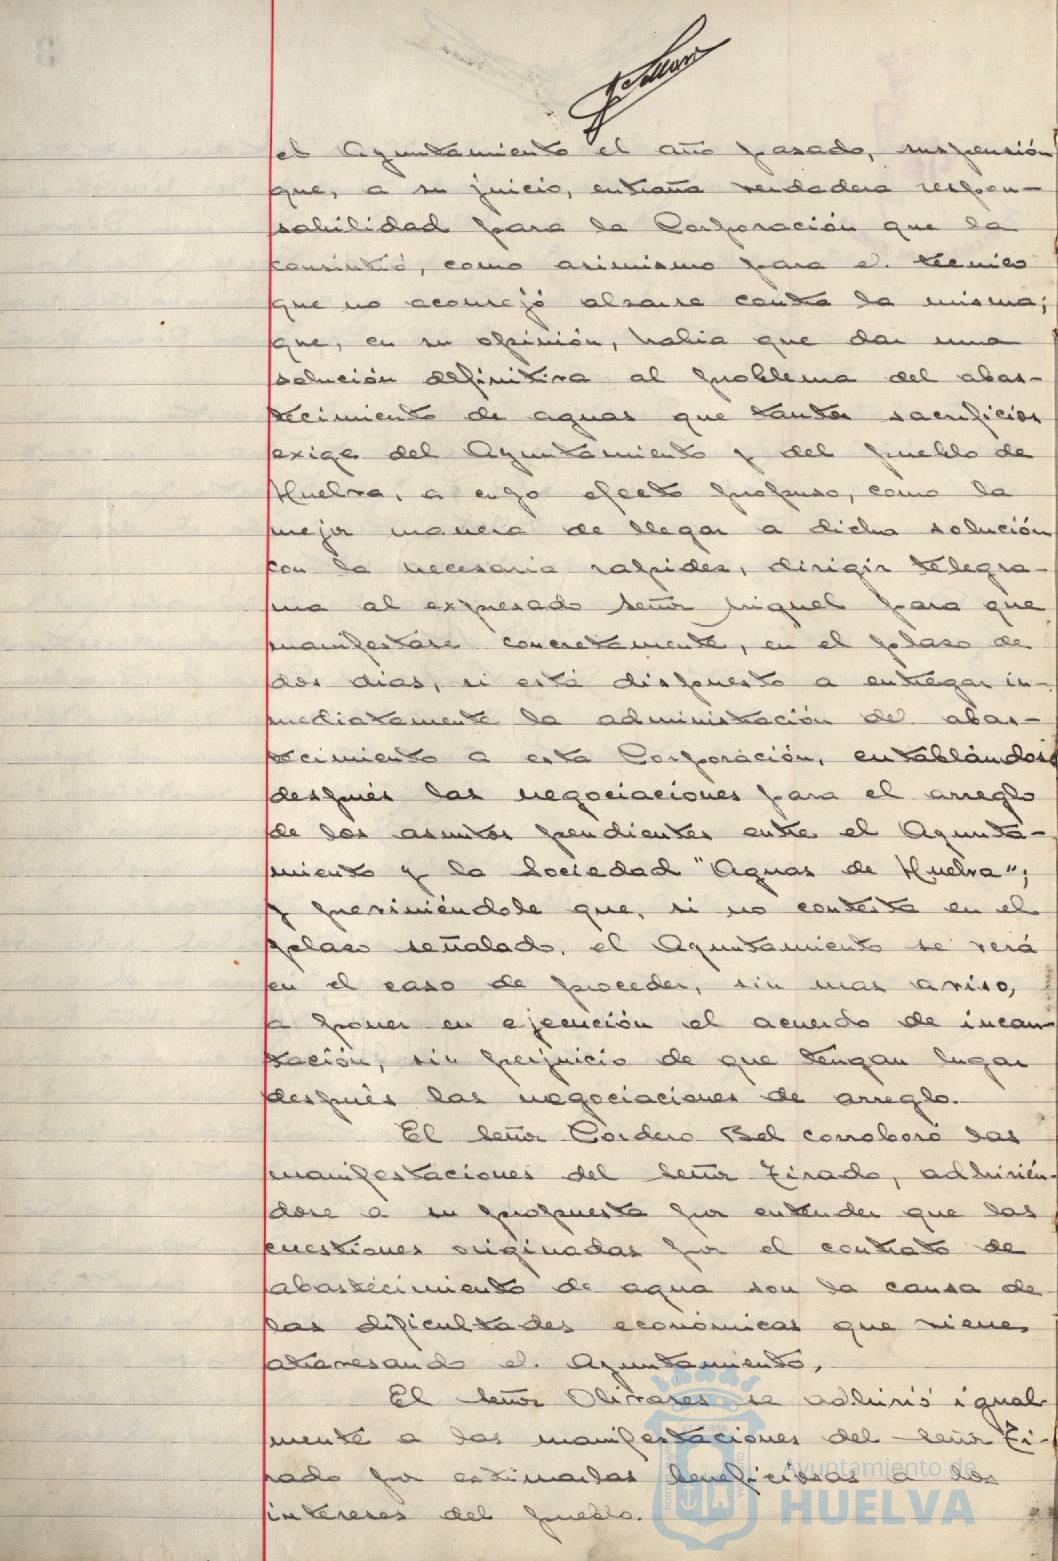 el Ayuntamiento el año pasado, suspensión
que, a su juicio, entraña verdadera respon-
sabilidad para la Corporación que la
consintió, como asimismo para el técnico
que no aconsejó alzarse contra la misma;
que, en su opinión, había que dar una
solución definitiva al problema del abas-
tecimiento de aguas que tantos sacrificios
exige del Ayuntamiento y del pueblo de
Huelva, a cuyo efecto propuso, como la
mejor manera de llegar a dicha solución
con la necesaria rapidez, dirigir telegra-
ma al expresado Señor Miguel para que
manifestáse concretamente, en el plazo de
dos días, si está dispuesto a entregar in-
mediatamente la administración del abas-
tecimiento a esta Corporación, entablándose
después las negociaciones para el arreglo
de los asuntos pendientes entre el Ayunta-
miento y la Sociedad "Aguas de Huelva";
y previniéndole que, si no contesta en el
plazo señalado, el Ayuntamiento se verá
en el caso de proceder, sin mas aviso,
a poner en ejecución el acuerdo de incau-
tación, sin perjuicio de que tengan lugar
después las negociaciones de arreglo.
El Señor Cordero Bel corroboró las
manifestaciones del Señor Tirado, adhirién-
dose a su propuesta por entender que las
cuestiones originadas por el contrato de
abastecimiento de agua son la causa de
las dificultades económicas que viene
atravesando el Ayuntamiento.
El Señor Olivares se adhirió igual-
mente a las manifestaciones del Señor Ti-
rado por estimarlas beneficiosas a los
intereses del pueblo.
Ayuntamiento de
HUELVA